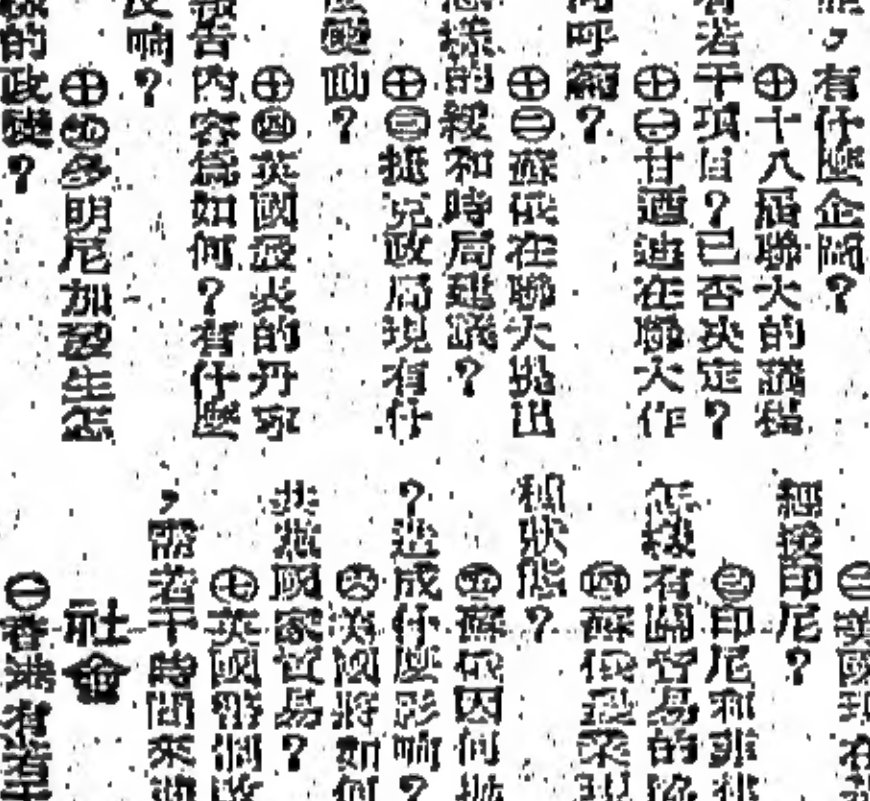 ，有什麼企圖？
㊉十八屆聯大的議程
有若干項目？已否決定？
㊉㊀甘迺迪在聯大作
何呼籲？
㊉㊁蘇俄在聯大提出
怎樣的緩和時局建議？
㊉㊂捷克政局現有什
麼變動？
㊉㊃英國發表的丹寧
報告內容爲如何？有什麼
反响？
㊉㊄多明尼加發生怎
樣的政變？
㊁美國現在
經援印尼？
㊂印尼和菲律
怎樣有關貿易的
㊃蘇俄
種狀態？
㊄蘇俄因何
？造成什麼影响？
㊅美國將如何
共黨國家貿易？
㊆英國
，需若干時間來
社會
㊀香港有若干